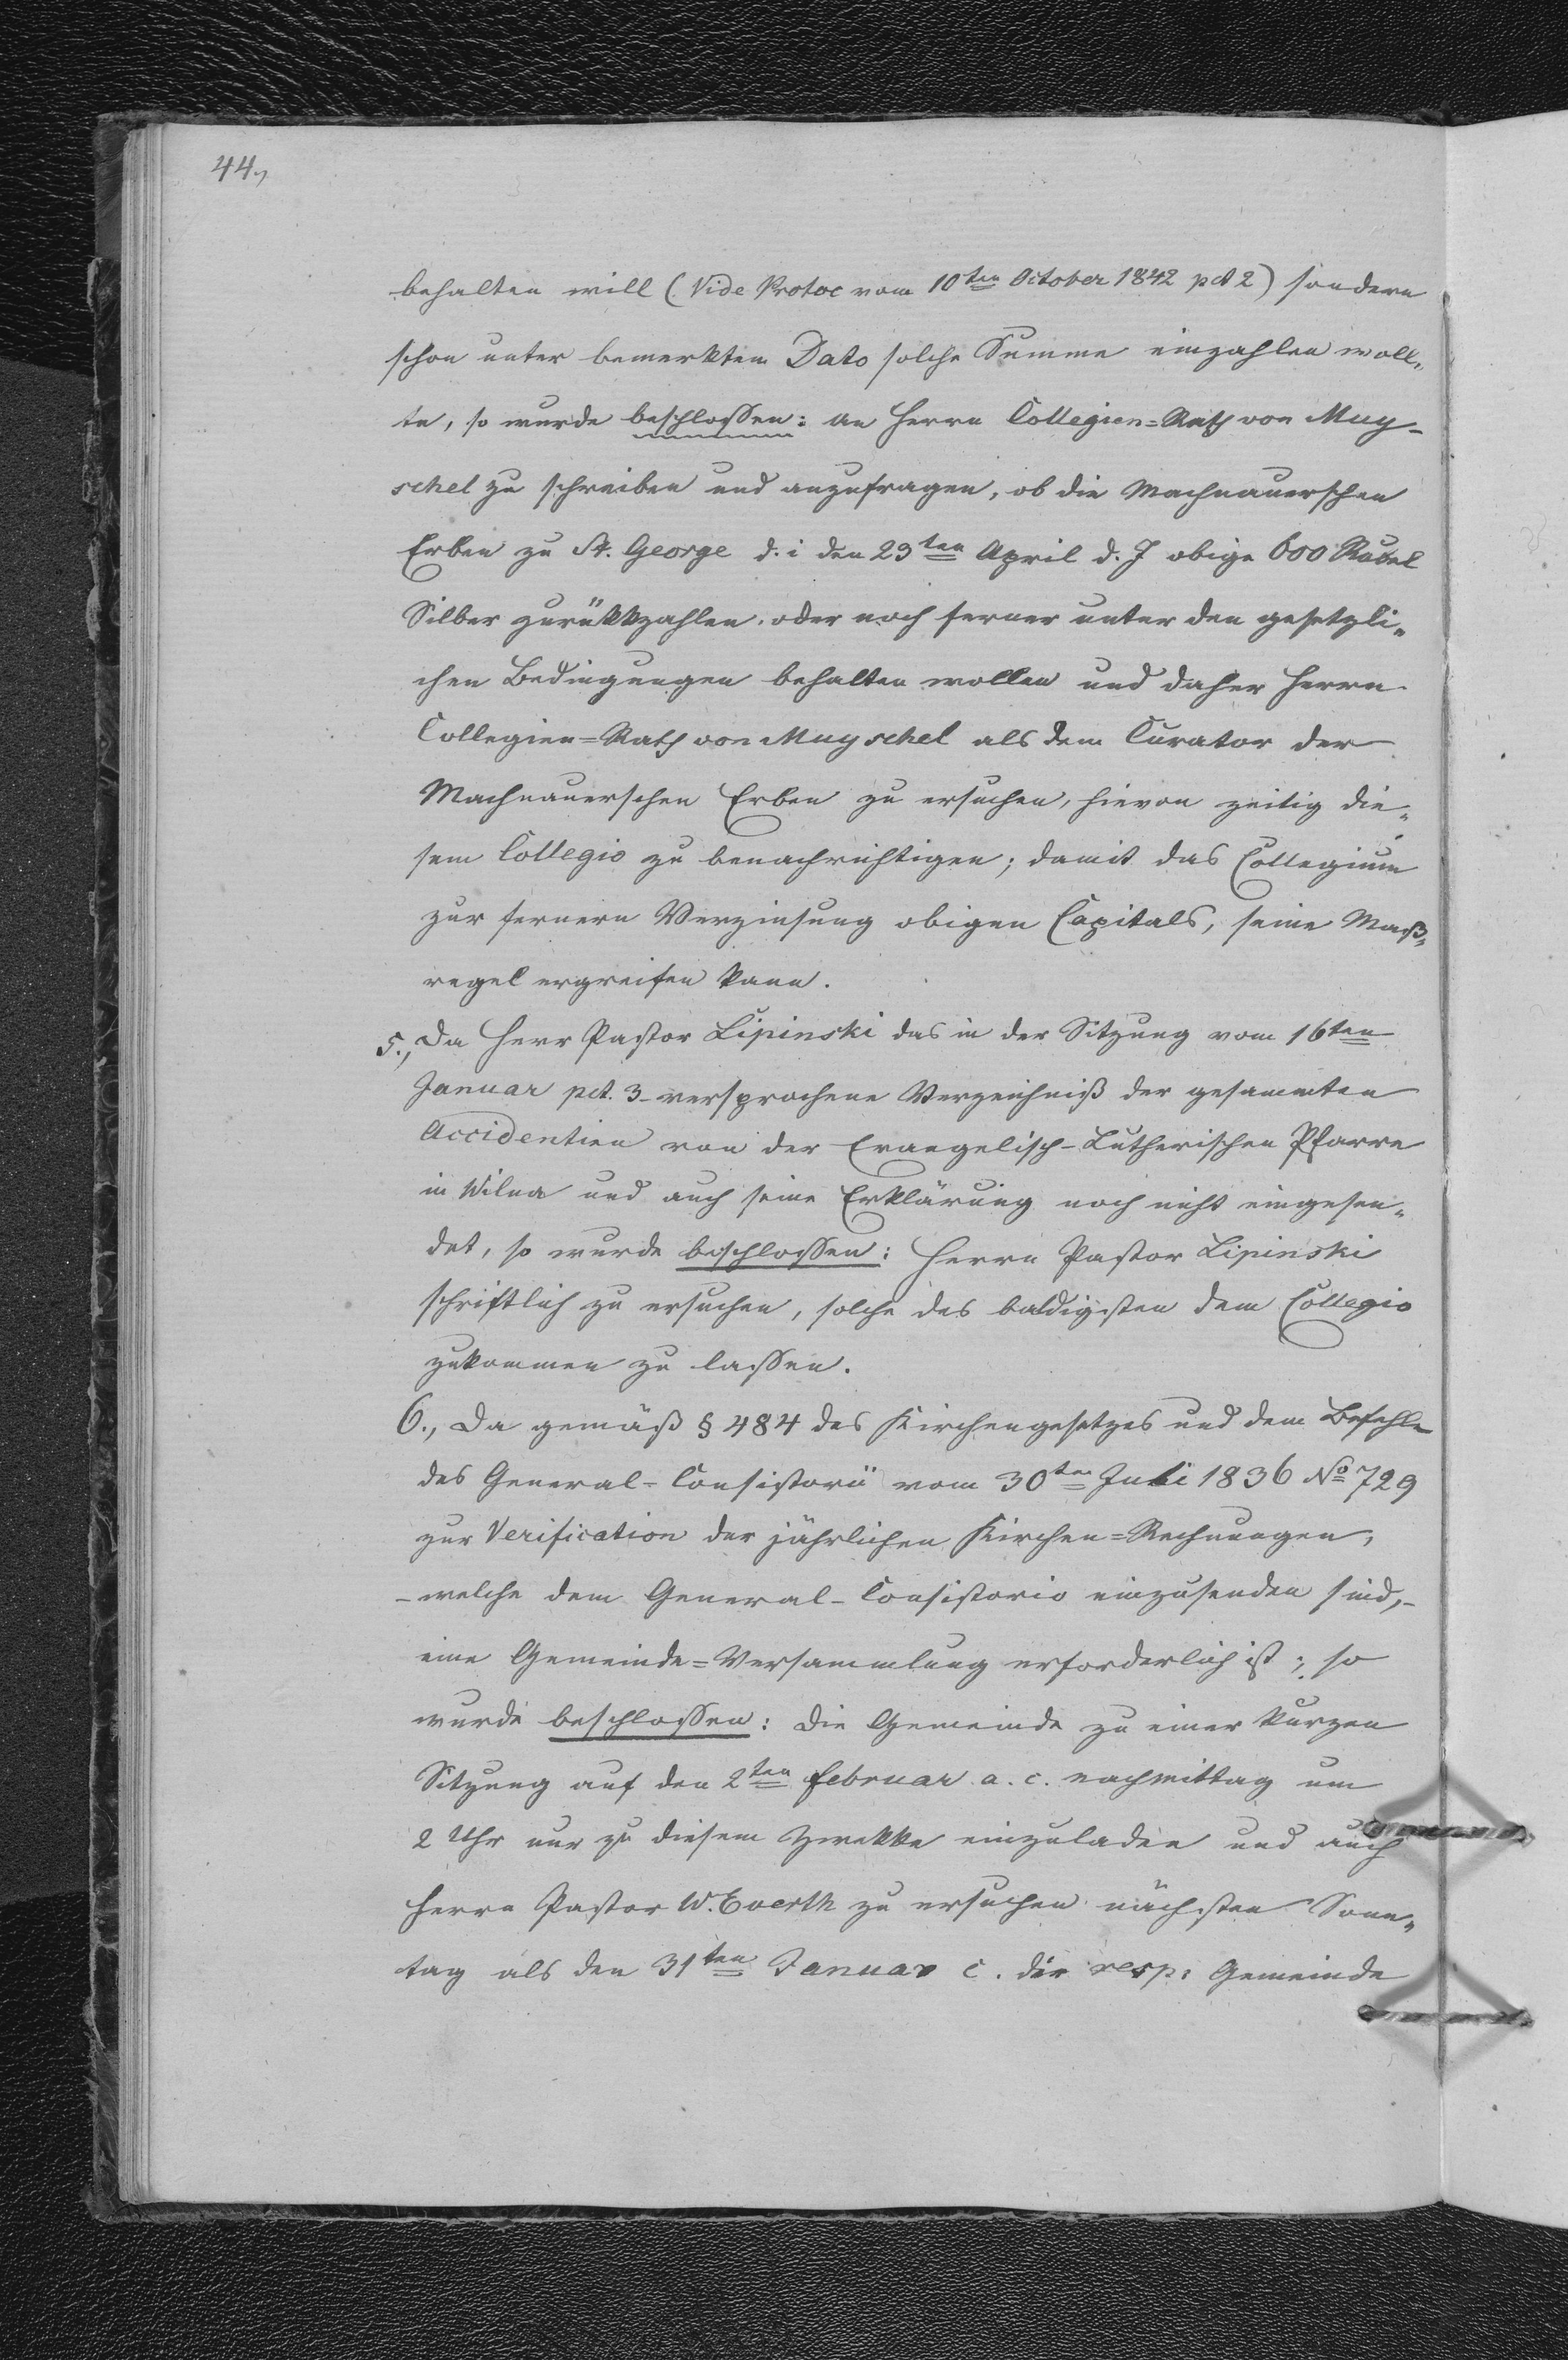 44.,
behalten will (Vide Protoc vom 10ten October 1842 pct 2) sondern
schon unter bemerktem Dato solche Summe einzahlen woll„
te, so wurde beschlossen: an Herrn Collegien=Rath von Muy-
schel zu schreiben und anzufragen, ob die Machnauerschen
Erben zu St. George d. i den 23ten April d. J obige 600 Rubel
Silber zurükkzahlen oder noch ferner unter den gesetzli„
chen Bedingungen behalten wollen und daher Herrn
Collegien=Rath von Muyschel als dem Curator der
Machnauerschen Erben zu ersuchen, hievon zeitig die„
sem Collegio zu benachrichtigen; damit das Collegium
zur fernern Verzinsung obigen Capitals, seine Maß„
regel ergreifen kann.
5., Da Herr Pastor Lipinski das in der Sitzung vom 16ten
Januar pct. 3 versprochene Verzeichniß der gesammten
Accidentien von der Evangelisch-Lutherischen Pfarre
in Wilna und auch seine Erklärung noch nicht eingesen„
det, so wurde beschlossen: Herrn Pastor Lipinski
schriftlich zu ersuchen, solche des baldigsten dem Collegio
zukommen zu lassen.
6., Da gemäß § 484 des Kirchengesetzes und dem Befehle
des General-Consistorii vom 30ten Juli 1836 No 729
zur Verification der jährlichen Kirchen=Rechnungen,
- welche dem General-Consistorio einzusenden sind, -
eine Gemeinde=Versammlung erforderlich ist; so
wurde beschlossen: die Gemeinde zu einer kurzen
Sitzung auf den 2ten Februar a. c. nachmittag um
2 Uhr nur zu diesem Zwekke einzuladen und auch
Herrn Pastor W. Everth zu ersuchen nächsten Sonn„
tag als den 31ten Januar c. die resp: Gemeinde